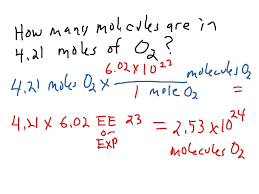 How many molecules are in
4.21 moles of O₂?
4.21 moles O₂ × 6.02×10²³ molecules O₂ / 1 mole O₂ =
4.21 × 6.02 EE 23 = 2.53×10²⁴
or
EXP
molecules O₂